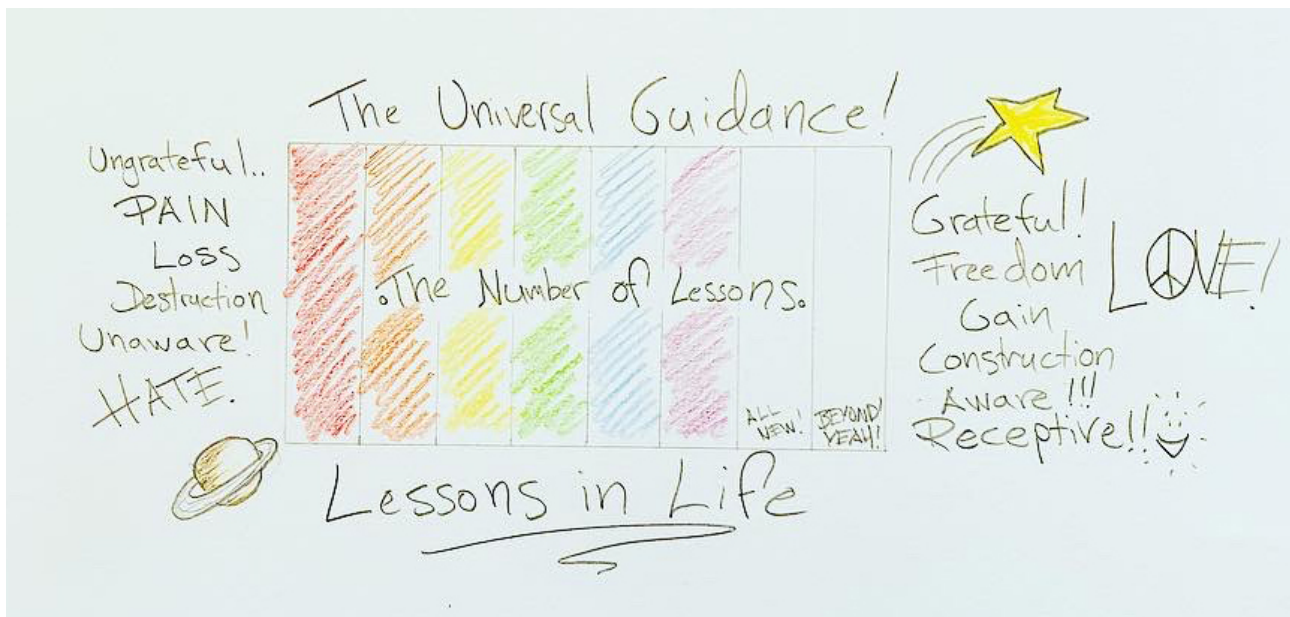 The Universal Guidance!
Ungrateful..
PAIN
Loss
Destruction
Unaware!
HATE.
.The Number of Lessons.
ALL
NEW!
BEYOND!
YEAH!
Grateful!!
Freedom
Gain
Construction
Aware!!!
Receptive!!
LOVE!
Lessons in Life